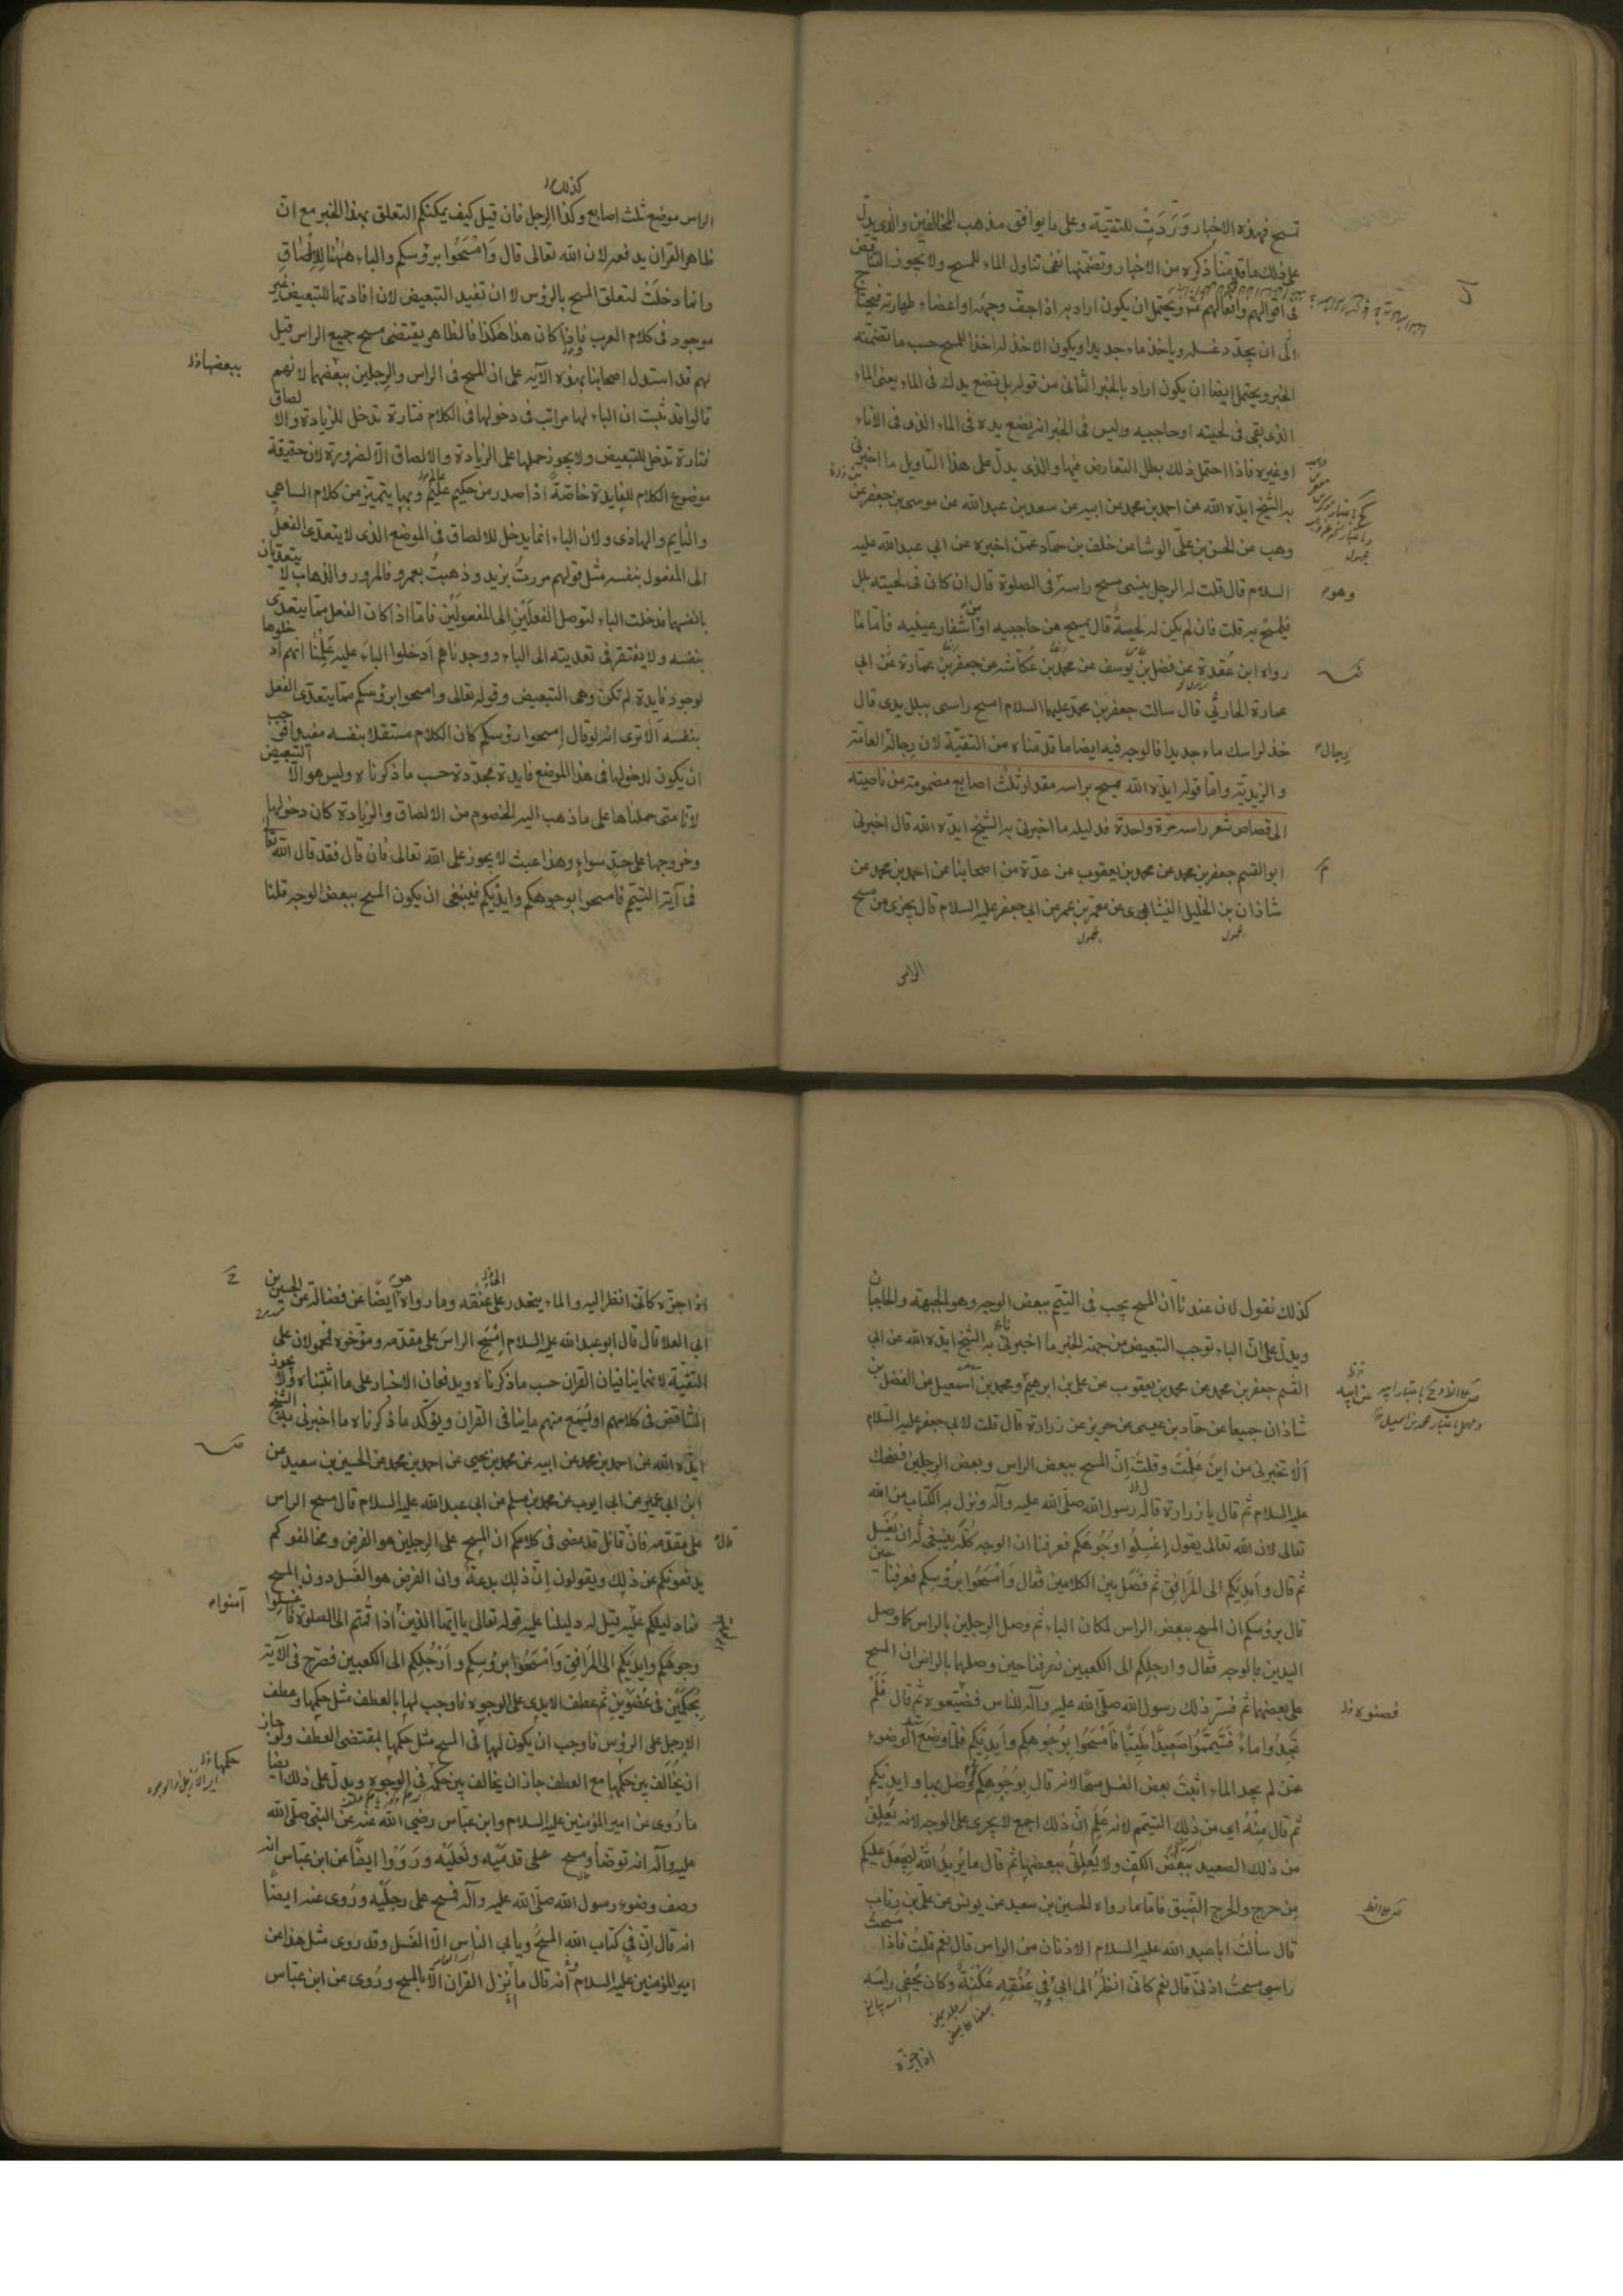 تمسح فهذه الاخبار وَرَدَت للتقيّة وعلى ما يوافق مذهب المخالفين والذى يدلّ
على ذلك ما قدمنا ذكره من الاخبار وتضمنها نفى تناول الماء للمسح ولا يجوز التناقض
فى اقوالهم وافعالهم ويحتمل ان يكون اراد به اذا جفّ وجهه او اعضاء طهارته فيحتاج
الى ان يجدّد غسله وياخذ ماء جديدا ويكون الاخذ له اخذا للمسح حسب ما تضمنه
الخبر ويحتمل ايضا ان يكون اراد بالخبر الثانى من قوله بل تضع يدك فى الماء يعنى الماء
الذى بقى فى لحيته او حاجبيه وليس فى الخبر انه يضع يده فى الماء الذى فى الاناء
او غيره فاذا احتمل ذلك بطل التعارض فيها والذى يدلّ على هذا التاويل ما اخبرنى
به الشيخ ايده الله عن احمد بن محمد عن ابيه عن سعد بن عبد الله عن موسى بن جعفر عن
وهب عن الحسن بن على الوشا عن خلف بن حماد عمن اخبره عن ابى عبد الله عليه
السلام قال قلت له الرجل ينسى مسح راسه وهو فى الصلوة قال ان كان فى لحيته بلل
فليمسح به قلت فان لم يكن له لحية قال يمسح من حاجبيه او من اشفار عينيه فاما ما
رواه ابن عقدة عن فضل بن يوسف عن محمد بن عكاشه عن جعفر بن عمارة عن ابى
عمارة الحارثى قال سالت جعفر بن محمد عليهما السلام امسح راسى ببلل يدى قال
خذ لراسك ماء جديدا فالوجه فيه ايضا ما قدمناه من التقيّة لان رجاله رجال العامة
والزيدية واما قوله ايده الله يمسح براسه مقدار ثلث اصابع مضمومة من ناصيته
الى قصاص شعر راسه مرة واحدة فدليله ما اخبرنى به الشيخ ايده الله قال اخبرنى
ابو القسم جعفر بن محمد عن محمد بن يعقوب عن عدّة من اصحابنا عن احمد بن محمد عن
شاذان بن الخليل النيشابورى عن معمر بن عمر عن ابى جعفر عليه السلام قال يجزى من مسح
مجهول
مجهول
الراس
كذلك
الراس موضع ثلث اصابع وكذا الرجل فان قيل كيف يمكنكم التعلق بهذا الخبر مع انّ
ظاهر القران يدفعه لان الله تعالى قال وَامْسَحُوا برؤسكم والباء ههنا للالصاق
وانما دخلت لتعلق المسح بالرؤس لا ان تفيد التبعيض لان افادتها للتبعيض غير
موجود فى كلام العرب واذا كان هذا هكذا فالظاهر يقتضى مسح جميع الراس قيل
لهم قد استدل اصحابنا بهذه الآية على ان المسح فى الراس والرجلين ببعضهما لانهم
ببعضها
قالوا قد ثبت ان الباء لها مراتب فى دخولها فى الكلام فتارة تدخل للزيادة والالصاق
فتارة تدخل للتبعيض ولا يجوز حملها على الزيادة والالصاق الا لضرورة لان حقيقة
موضوع الكلام للفايدة خاصّة اذا صدر من حكيم عليم وبها يتميّز من كلام الساهى
والنايم والهاذى ولان الباء انما يدخل للالصاق فى الموضع الذى لا يتعدى الفعل
الى المفعول بنفسه مثل قولهم مررت بزيد وذهبت بعمرو فالمرور والذهاب لا يتعديان
بانفسهما فدخلت الباء لتوصل الفعلين الى المفعولين فاما اذا كان الفعل مما يتعدى
بنفسه ولا يفتقر فى تعديته الى الباء ووجدناهم ادخلوا الباء عليه علمنا انهم ادخلوها
لوجود فايدة لم تكن وهى التبعيض وقوله تعالى وامسحوا برؤسكم مما يتعدى الفعل
بنفسه الا ترى انه لو قال امسحوا رؤسكم كان الكلام مستقلا بنفسه مفيدا فوجب
ان يكون لدخولها فى هذا الموضع فايدة مجدّدة حسب ما ذكرناه وليس هو الا التبعيض
لانا متى حملناها على ما ذهب اليه الخصوم من الالصاق والزيادة كان دخولها
وخروجها على حدّ سواء وهذا عبث لا يجوز على الله تعالى فان قال فقد قال الله تعالى
فى آية التيمم فامسحوا بوجوهكم وايديكم فينبغى ان يكون المسح ببعض الوجه قلنا
كذلك نقول لان عندنا ان المسح يجب فى التيمم ببعض الوجه وهو الجبهة والحاجبان
ويدل على ان الباء توجب التبعيض من جهة الخبر ما اخبرنى به الشيخ ايده الله عن ابى
القسم جعفر بن محمد عن محمد بن يعقوب عن على بن ابرهيم ومحمد بن اسمعيل عن الفضل بن
عن ابيه
شاذان جميعا عن حماد بن عيسى عن حريز عن زرارة قال قلت لابى جعفر عليه السلام
الا تخبرنى من اين علمت وقلت انّ المسح ببعض الراس وبعض الرجلين فضحك
عليه السلام ثم قال يا زرارة قاله رسول الله صلى الله عليه وآله ونزل به الكتاب من الله
تعالى لان الله تعالى يقول اغْسِلُوا وُجُوهَكم فعرفنا ان الوجه كلّه ينبغى له ان يُغسَل
ثم قال وايديكم الى المرافق ثم فصّل بين الكلامين فقال وَامْسَحُوا برؤسكم فعرفنا حين
قال برؤسكم ان المسح ببعض الراس لمكان الباء ثم وصل الرجلين بالراس كما وصل
اليدين بالوجه فقال وارجلكم الى الكعبين فعرفنا حين وصلهما بالراس ان المسح
على بعضهما ثم فسّر ذلك رسول الله صلى الله عليه وآله للناس فضيّعوه ثم قال فَلَمْ
تَجِدُوا ماءً فَتَيَمَّمُوا صَعِيدًا طَيِّبًا فَامْسَحُوا بِوُجُوهِكم وَايديكم فلما وضع الوضوء
عمن لم يجد الماء اثبت بعض الغسل مسحا لانه قال بوجوهكم ثم وصل بها وايديكم
ثم قال مِنْهُ اى من ذلك التيمم لانه علم ان ذلك اجمع لا يجرى على الوجه لانه يعلق
من ذلك الصعيد ببعض الكف ولا يعلق ببعضها ثم قال ما يُرِيدُ اللّٰهُ لِيَجْعَلَ عليكم
مِن حرج والحرج الضيق فاما ما رواه الحسين بن سعيد عن يونس عن على بن رئاب
قال سألت ابا عبد الله عليه السلام الاذنان من الراس قال نعم قلت فاذا مسحت
راسى مسحت اذنىّ قال نعم كانى انظر الى ابى فى عنقه عكنة وكان يحفى راسه
اذا جزّه
اذا جزّه كانى انظر اليه والماء ينحدر على عنقه وما رواه ايضا عن فضالة عن الحسين بن
ابى العلا قال قال ابو عبد الله عليه السلام امسح الراس على مقدمه ومؤخره فمحمولان على
التقيّة لانهما ينافيان القران حسب ما ذكرناه ويدفعان الاخبار على ما اثبتناه ولا يجوز
التناقض فى كلامهم او يسمع منهم ما ينافى القران ويؤكّد ما ذكرناه ما اخبرنى به الشيخ
ايده الله عن احمد بن محمد عن ابيه عن محمد بن يحيى عن احمد بن محمد عن الحسين بن سعيد عن
ابن ابى عمير عن ابى ايوب عن محمد بن مسلم عن ابى عبد الله عليه السلام قال مسح الراس
على مقدمه فان قال قائل قد مضى فى كلامكم ان المسح على الرجلين هو الفرض ومخالفوكم
يدفعونكم عن ذلك ويقولون انّ ذلك بدعة وان الفرض هو الغسل دون المسح
فما دليلكم عليه قيل له دليلنا عليه قوله تعالى يا ايها الذين آمنوا اذا قمتم الى الصلوة فاغسلوا
وجوهكم وايديكم الى المرافق وَامْسَحُوا برؤسكم وارجلكم الى الكعبين فصرّح فى الآية
بحكمين فى عضوين ثم عطف الايدى على الوجوه فاوجب لها بالعطف مثل حكمها وعطف
الارجل على الرؤس فاوجب ان يكون لها فى المسح مثل حكمها بمقتضى العطف ولو جاز
ان يخالف بين حكمها مع العطف جاز ان يخالف بين حكم فى الوجوه ويدل على ذلك ايضا
ما رُوى عن امير المؤمنين عليه السلام وابن عباس رضى الله عنه عن النبى صلى الله
عليه وآله انه توضأ ومسح على قدميه ونعليه ورووا ايضا عن ابن عباس انه
وصف وضوء رسول الله صلى الله عليه وآله فمسح على رجليه ورُوى عنه ايضا
انه قال انّ فى كتاب الله المسح ويابى الناس الا الغسل وقد روى مثل هذا عن
امير المؤمنين عليه السلام وانه قال ما نزل القران الا بالمسح ورُوى عن ابن عباس